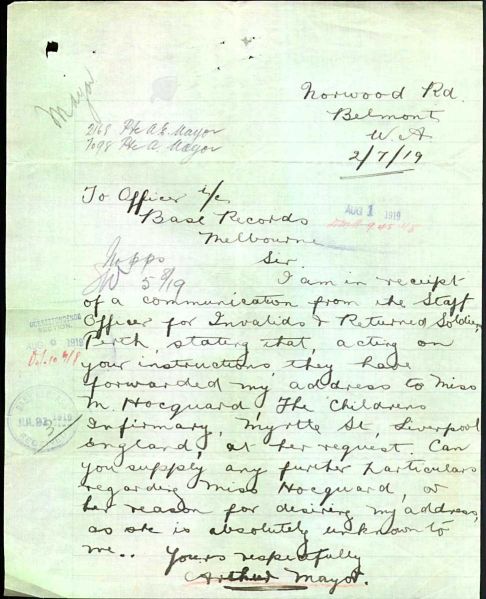 Mayor
Norwood Rd.
Belmont
W. A
2/7/19
2168 Pte A. E. Mayor
7098 Pte A. Mayor
To Officer i/c
Base Records
Melbourne
AUG 1 1919
5/8/19
Sir
I am in receipt
of a communication from the Staff
Officer for Invalids & Returned Soldiers
Perth, stating that, acting on
your instructions, they have
forwarded my address to Miss
M. Hocquard, The Childrens
Infirmary, Myrtle St, Liverpool
England, at her request. Can
you supply any further particulars
regarding Miss Hocquard, or
her reason for desiring my address,
as she is absolutely unknown to
me..
Yours respectfully
Arthur Mayor.
CORRESPONDENCE
SECTION
AUG 1919